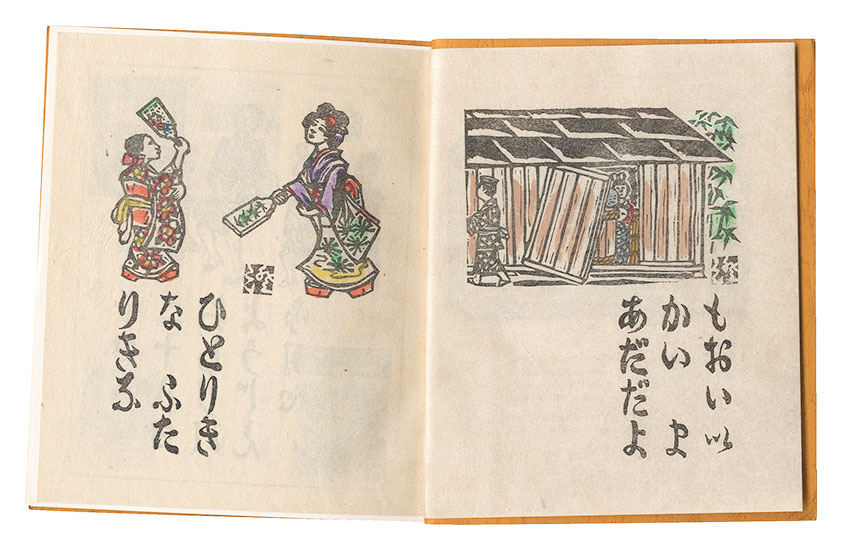 もおいい
かい ま
あだだよ
ひとりき
な ふた
りきな